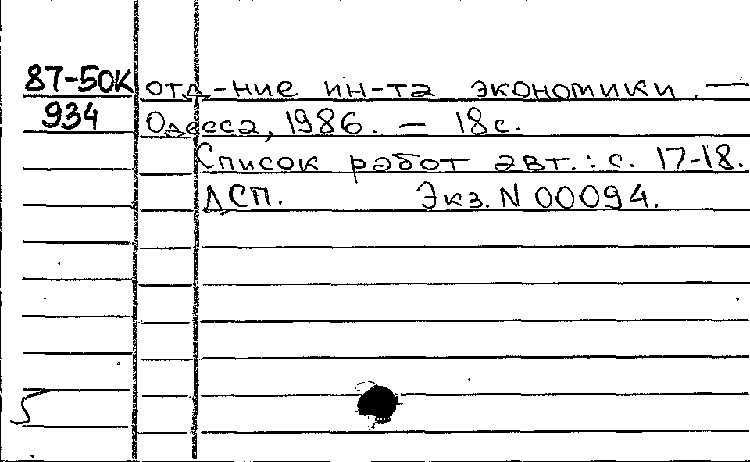 87-50К отд-ние ин-та экономики. —
934 Одесса, 1986. — 18 с.
Список работ авт.: с. 17-18.
ДСП. Экз. N 00094.